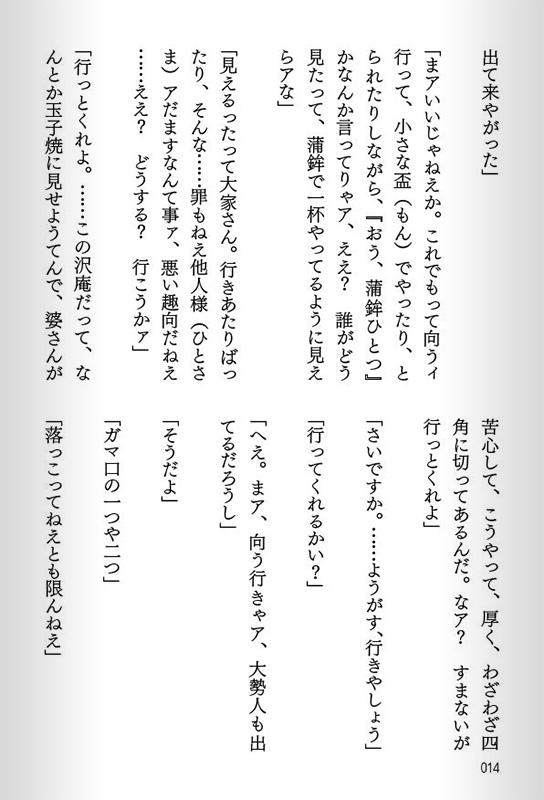 出て来やがった」
「まアいいじゃねえか。これでもって向うィ
行って、小さな盃（もん）でやったり、と
られたりしながら、『おう、蒲鉾ひとつ』
かなんか言ってりゃア、ええ？　誰がどう
見たって、蒲鉾で一杯やってるように見え
らアな」
「見えるったって大家さん。行きあたりばっ
たり、そんな……罪もねえ他人様（ひとさ
ま）アだますなんて事ァ、悪い趣向だねえ
……ええ？　どうする？　行こうかァ」
「行っとくれよ。……この沢庵だって、な
んとか玉子焼に見せようてんで、婆さんが
苦心して、こうやって、厚く、わざわざ四
角に切ってあるんだ。なア？　すまないが
行っとくれよ」
「さいですか。……ようがす、行きやしょう」
「行ってくれるかい？」
「へえ。まア、向う行きゃア、大勢人も出
てるだろうし」
「そうだよ」
「ガマ口の一つや二つ」
「落っこってねえとも限んねえ」
014